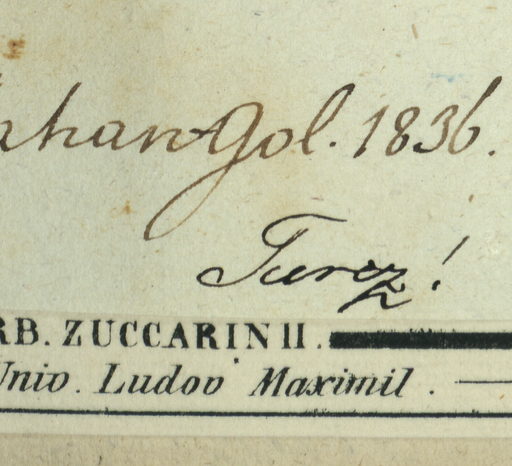 ahan Gol. 1836.
Turcz!
RB. ZUCCARINII.
Univ. Ludov Maximil.